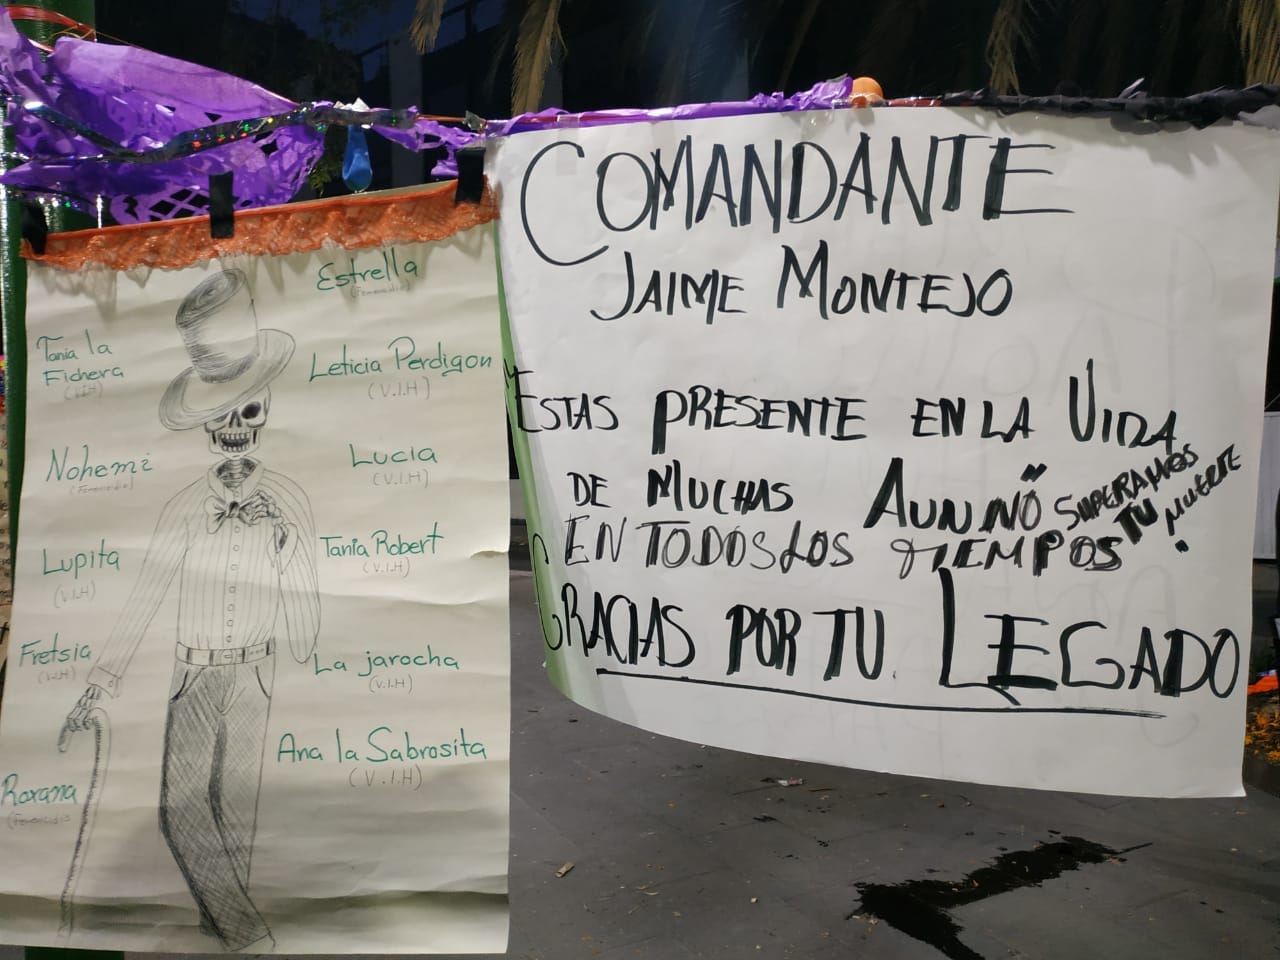 Estrella
(Feminicidio)
Tania la
Fichera
(V.I.H)
Leticia Perdigon
(V.I.H)
Nohemi
(Feminicidio)
Lucia
(V.I.H)
Lupita
(V.I.H)
Tania Robert
(V.I.H)
Fretsia
(V.I.H)
La jarocha
(V.I.H)
Ana la Sabrosita
(V.I.H)
Roxana
(Feminicidio
COMANDANTE
JAIME MONTEJO
ESTAS PRESENTE EN LA VIDA
DE MUCHAS AUN NO SUPERAMOS
TU MUERTE.
EN TODOS LOS TIEMPOS
GRACIAS POR TU LEGADO